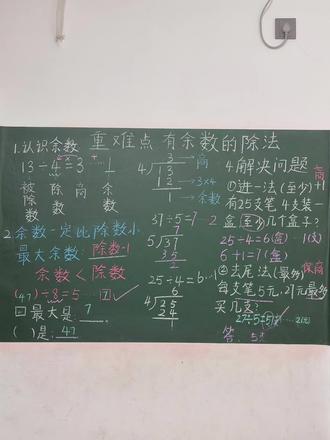 重难点 有余数的除法
1.认识余数
13÷4=3……1
被除数 除数 商 余数
2.余数一定比除数小
最大余数 除数-1
余数<除数
(47)÷8=5……7
最大是 7
( )是 47
3
4√13
12 → 3×4
1 → 余数
商
37÷5=7……2
7
5√37
35
2
25÷4=6…1
6
4√25
24
1
4.解决问题
①进一法(至少) 商+1
有25支笔 4支装一
盒 至少几个盒子?
25÷4=6(盒)……1(支)
6+1=7(盒)
②去尾法(最多) 保商
每支笔5元,27元最多
买几支?
27÷5=5(支)……2(元)
答:5支